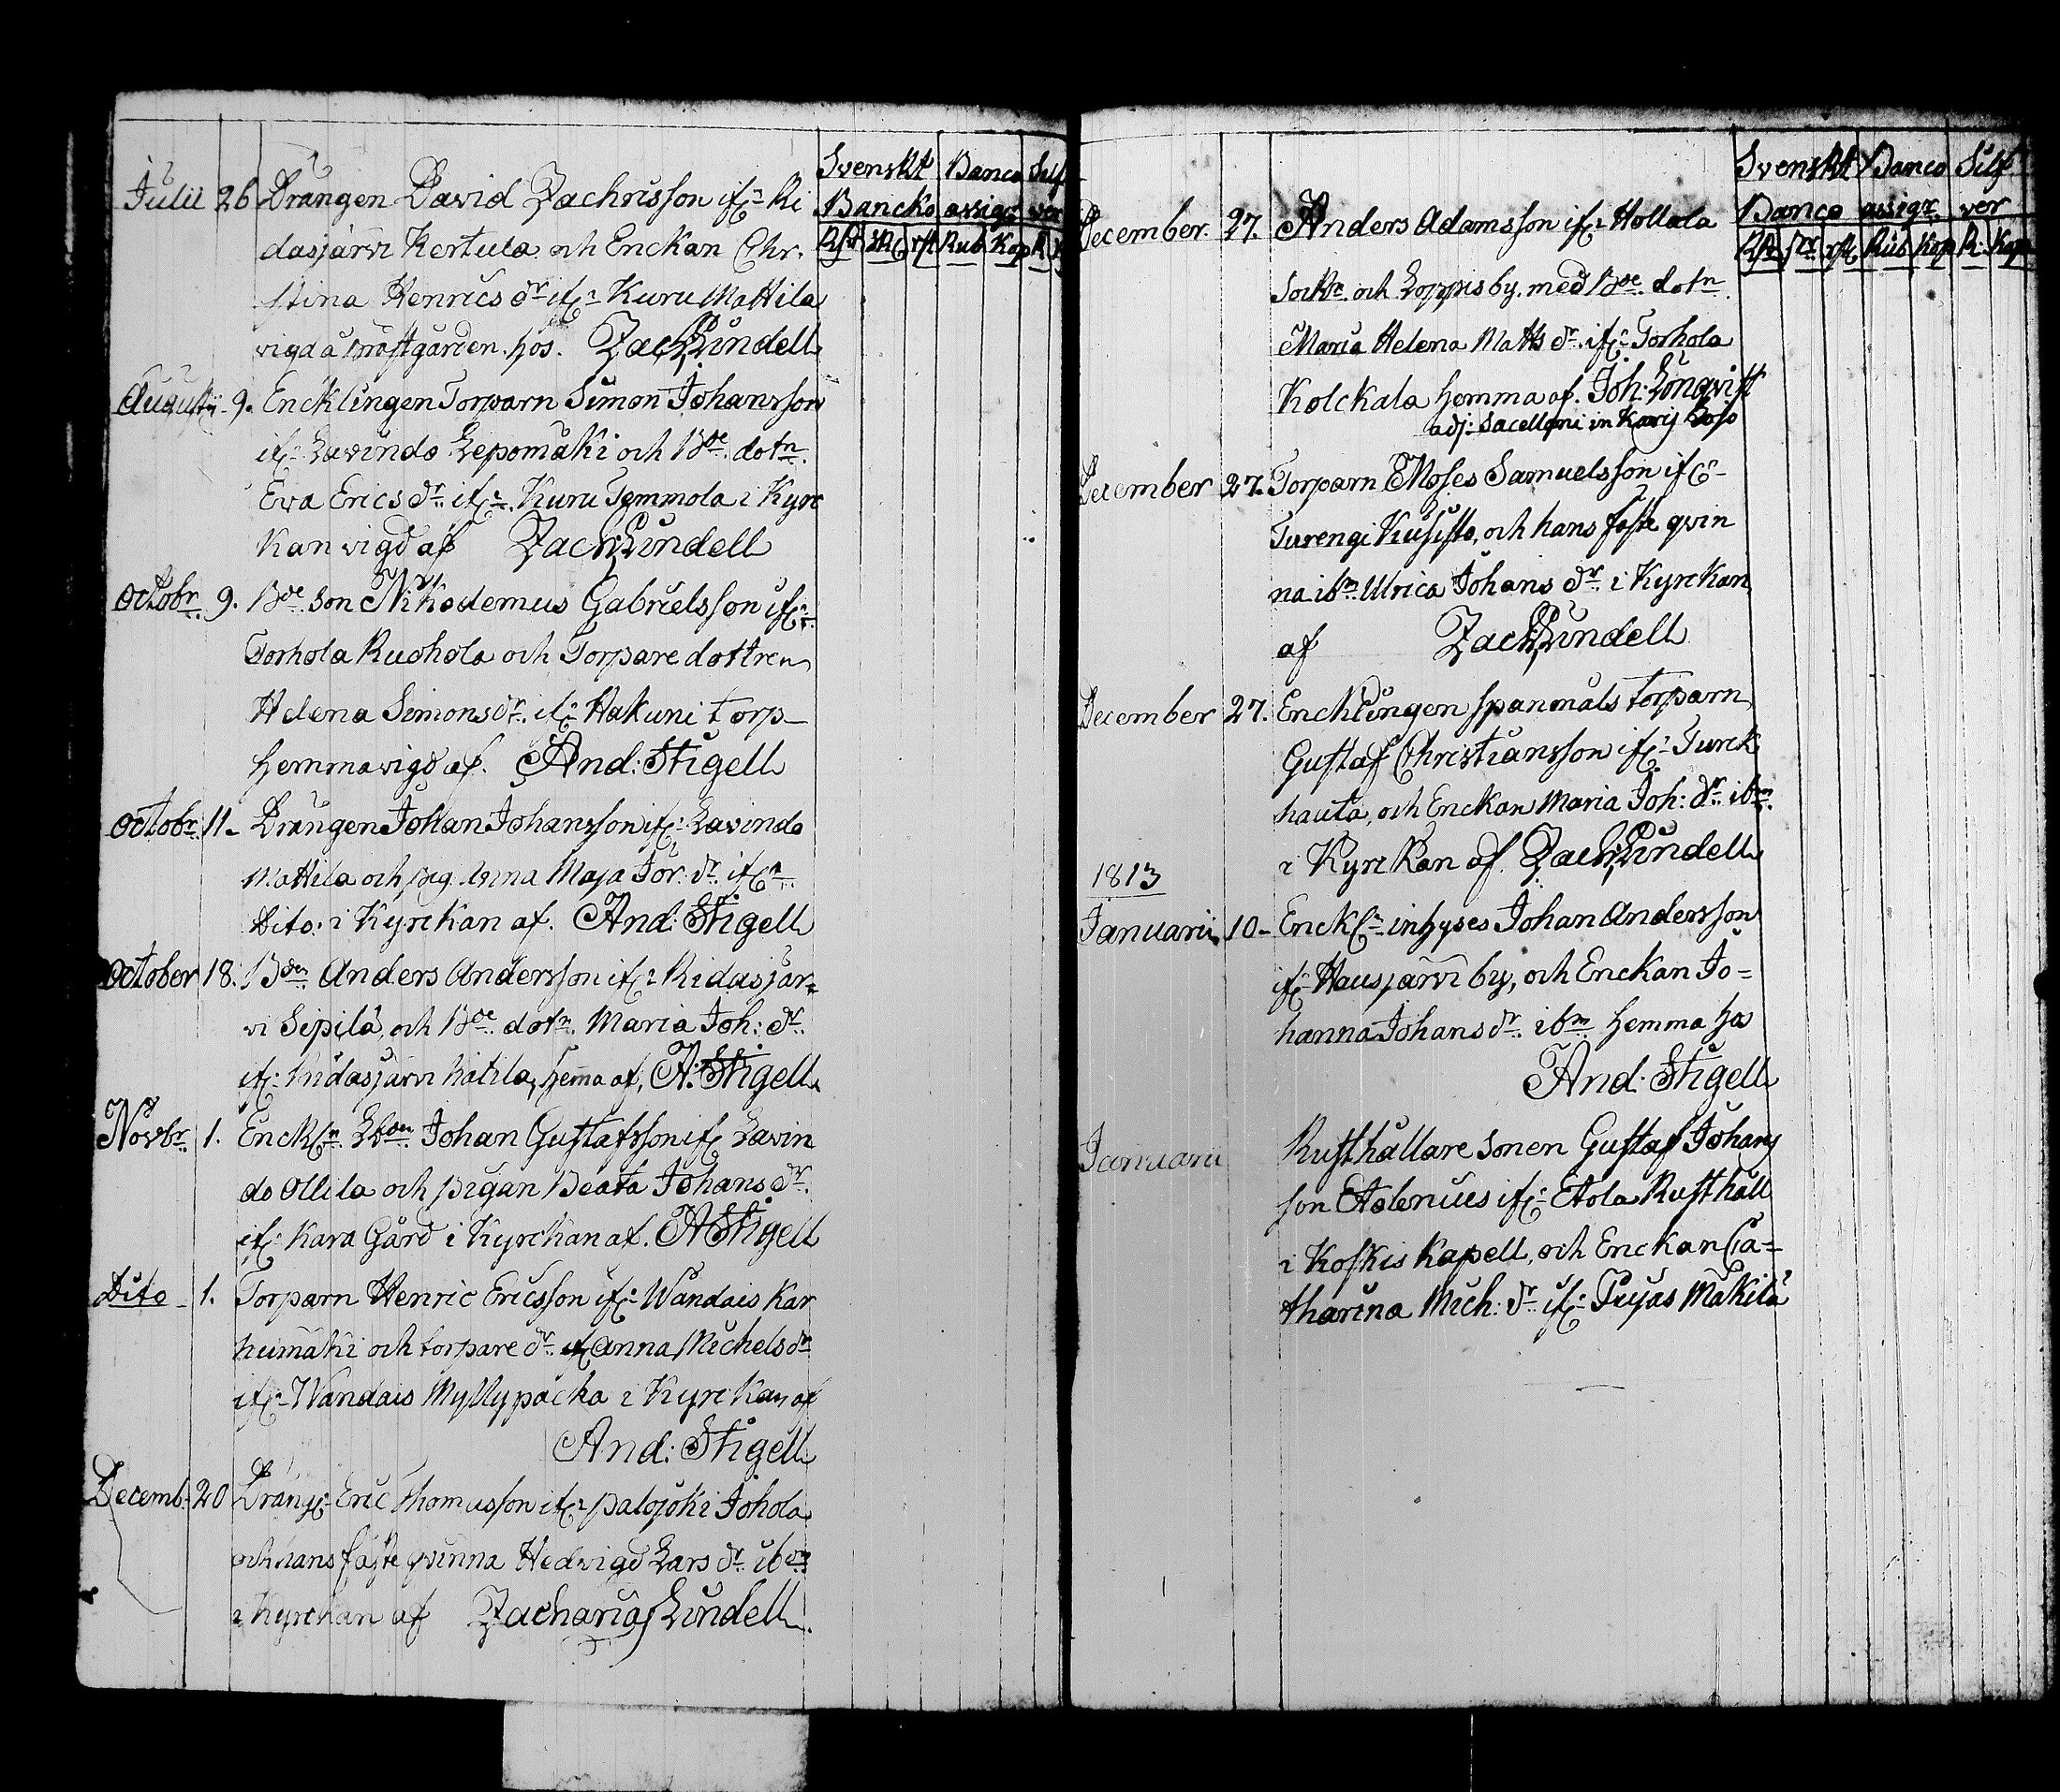 Svenskt Banco Silf
Bancko assigr ver
Rst Rub Kop R
Julii 26 Drängen David Zachrisson ifr: Ri
dasjärvi Kertula och Enckan Chr.
stina Henrics dr ifr: Kuru Mattila
vigda i Prästgården. hos. Zach: Lindell
Augustii 9. Encklingen Torparn Simon Johansson
ifr: Lavindo Lepomäki och Bde. dotn.
Eva Erics dr. ifr: Kuru Temmola i Kyrc
kan vigd af Zach: Lindell
Octobr. 9. Bde. son Nikodemus Gabrielsson ifr:
Torhola Ruohola och Torpare dottren
Helena Simonsdr. ifr: Hakuni torp
hemma vigd af. And: Stigell
Octobr. 11. Drängen Johan Johansson ifr: Lavindo
Mattila och pig. Anna Maja Jör: dr. ifr:
Dito. i Kyrckan af. And: Stigell
October 18. Bden Anders Andersson ifr: Ridasjär-
vi Sipilä, och Bde. dotn. Maria Joh: dr.
ifr: Ridasjärvi Hätila, hemma af, A: Stigell
Novbr. 1. Enckln. Johan Gustafsson ifr: Lavin
do Ollila och pigan Beata Johans dr.
ifr: Kara Gård i Kyrckan af. A Stigell
Dito 1. Torparn Henric Ericsson ifr: Wandais Kar
humäki och torpare dr. Anna Michels dr
ifr: Wandais Myllypacka i Kyrckan af
And: Stigell
Decemb. 20 Dräng: Eric Thomasson ifr: Palojoki Johola
och hans fäste qvinna Hedvigd Lars dr. ibm
i Kyrckan af Zacharias Lindell.
Svenskt Banco Silf
Banco assigr. ver
Rst Rub Kop R: Kop
December. 27. Anders Adamsson ifr: Hollola
Sockn. och Loppis by. med Bde. dotn.
Maria Helena Matts dr. ifr: Torhola
Kolckala hemma af. Joh: Lönqvist
adj: Sacellani in Karis Lojo
December 27. Torparn Moses Samuelsson ifr:
Turengi Kusisto, och hans fäste qvin
na ibm. Ulrica Johans dr. i Kyrckan
af Zach: Lindell
December 27. Encklingen spanmåls torparn
Gustaf Christiansson ifr: Turck
hauta, och Enckan Maria Joh: dr. ibm.
i Kyrckan af. Zach: Lindell
1813
Januarii 10 Enckln: inhyses Johan Andersson
ifr: Hausjärvi by, och Enckan Jo-
hanna Johans dr. ibm. hemma hos
And: Stigell
Januarii Rusthållare sonen Gustaf Johans
son Etolenius ifr: Etola Rusthåll
i Koskis Kapell, och Enckan Ca-
tharina Mich: dr. ifr: Pujas Mäkilä